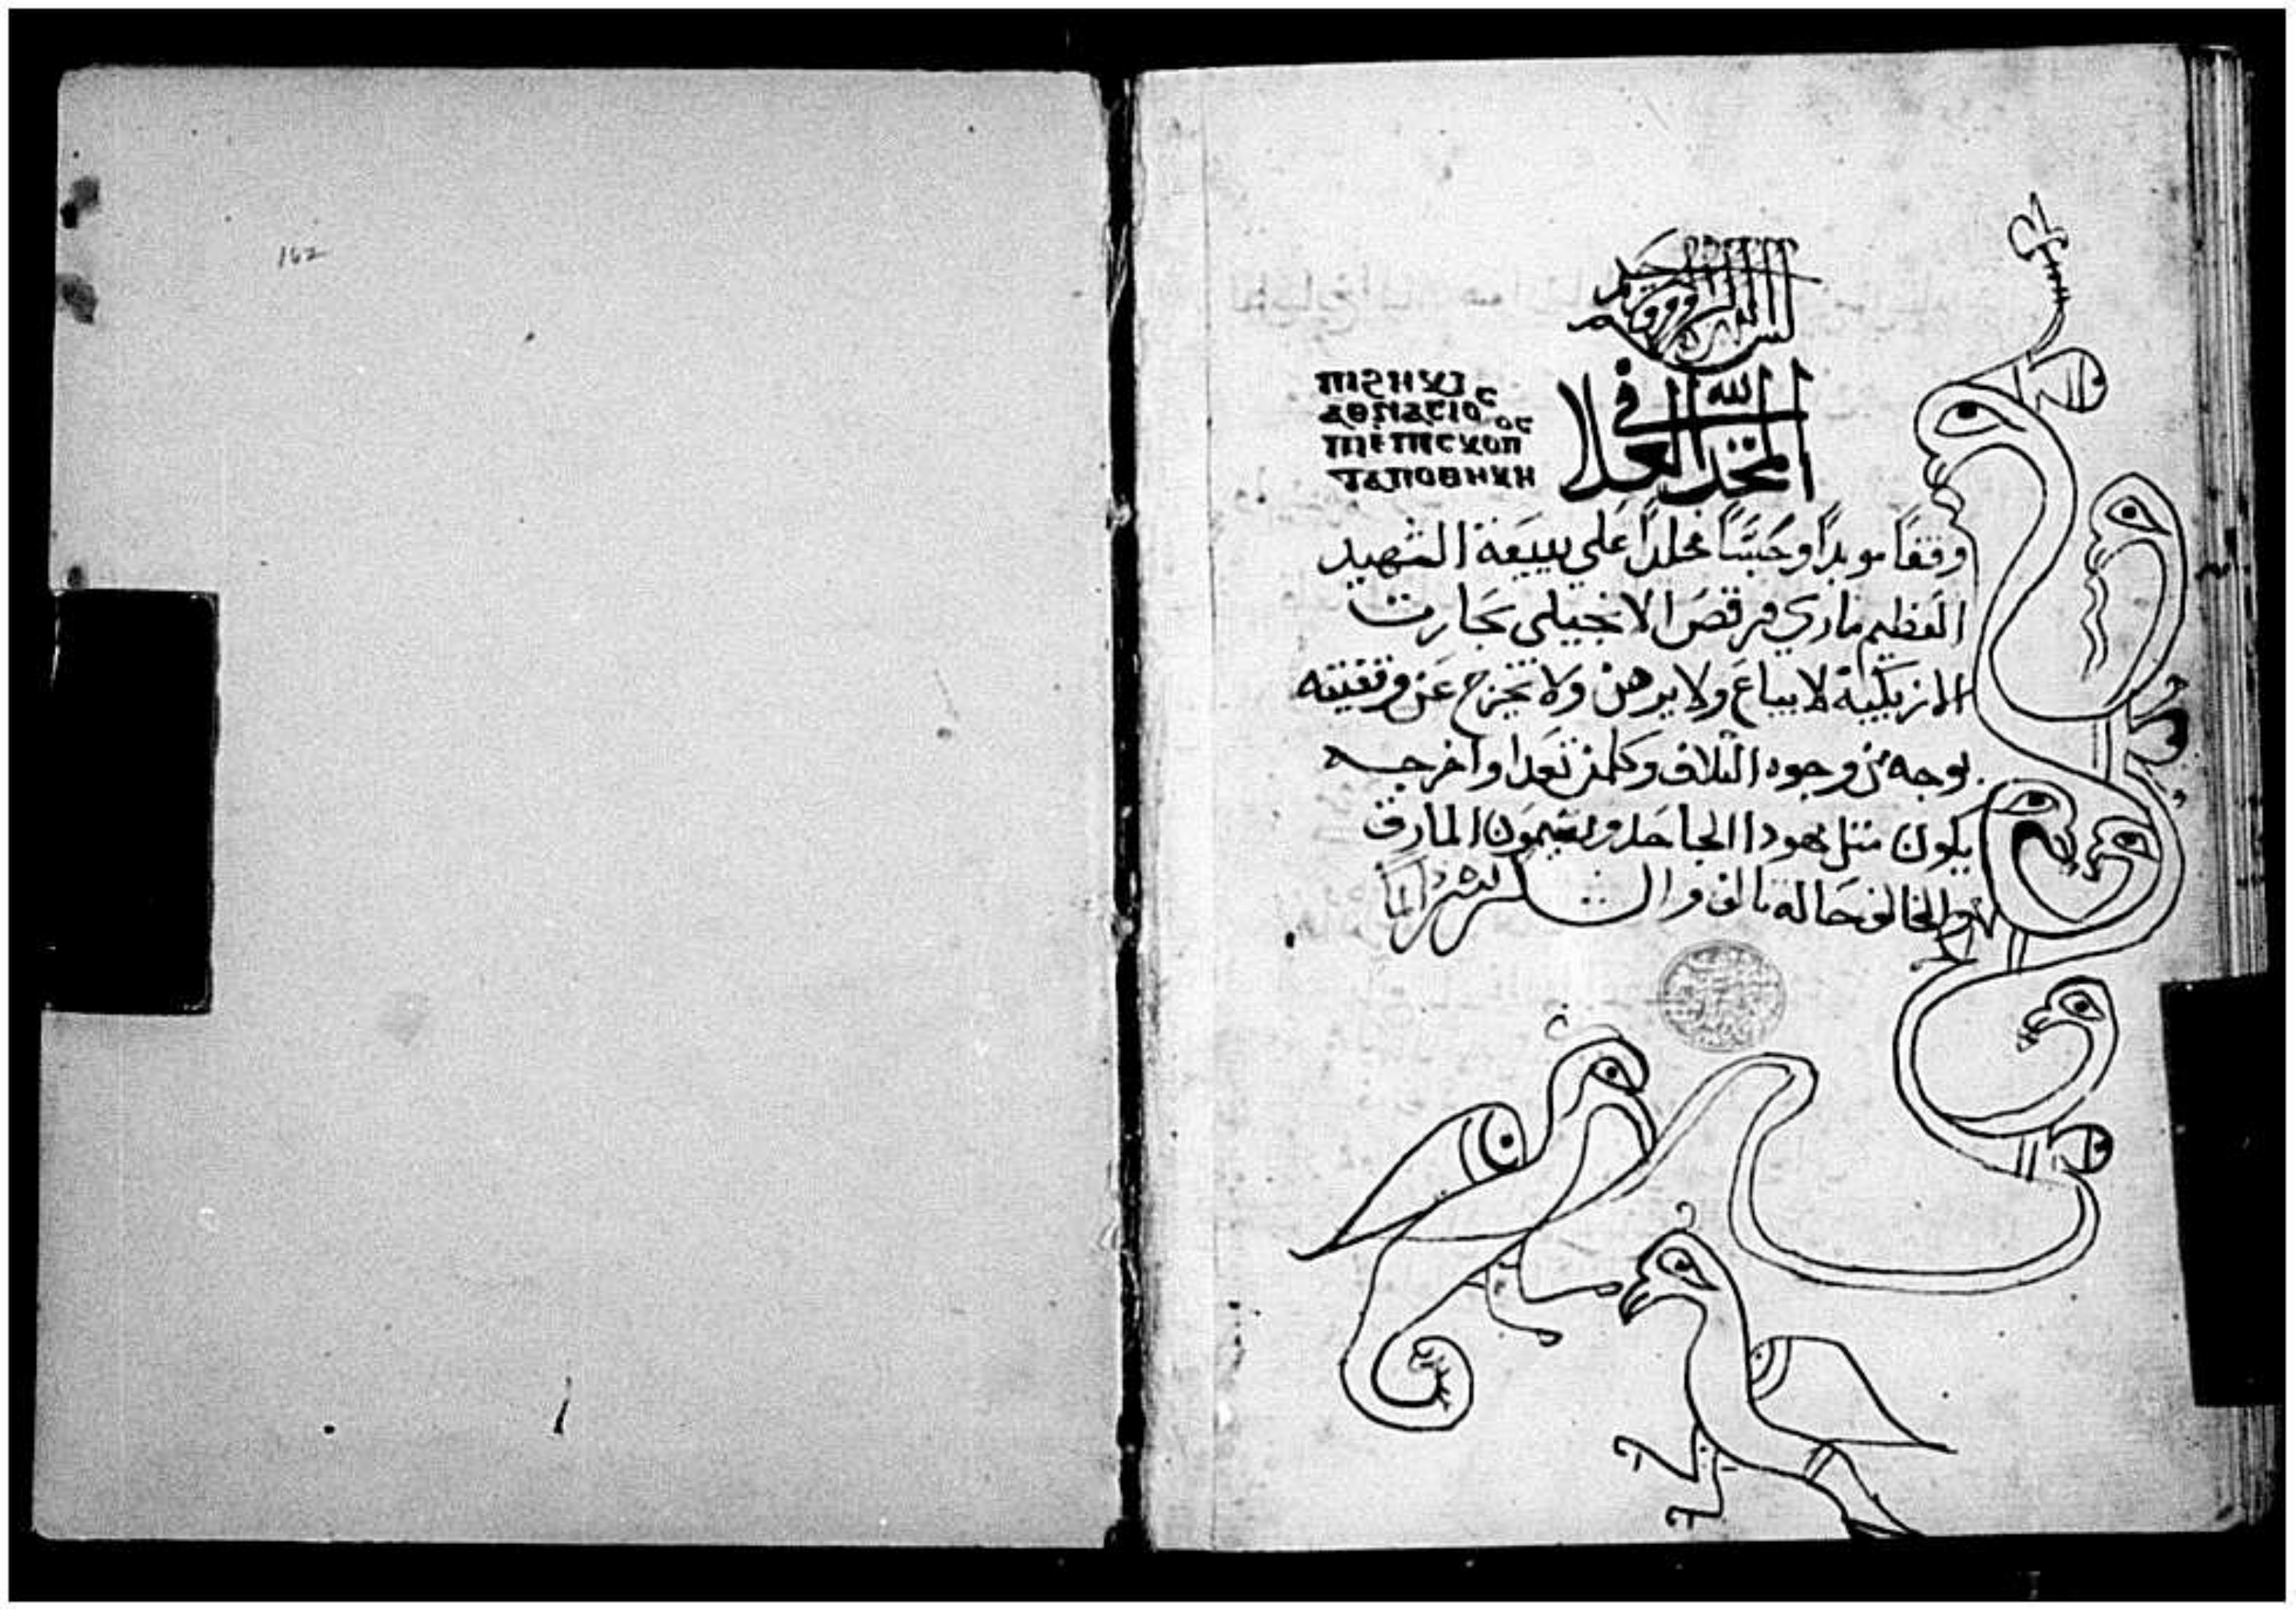 162
المجد لله في العلا
ⲡⲓϩⲏⲕⲓ
ⲁⲑⲁⲛⲁⲥⲓⲟⲥ
ⲡⲓⲉⲡⲓⲥⲕⲟⲡⲟⲥ
ⲁⲡⲟⲑⲏⲕⲏ
وقفاً موبداً وحبساً مخلداً علي بيعة الشهيد
العظيم ماري مرقص الانجيلي بحارت
الازبكية لا يباع ولا يرهن ولا يخرج عن وقفيته
بوجه من وجوه التلاف وكلمن تعدا واخرجه
يكون مثل يهودا الجاحد وسيمون المارق
والمخالف حاله تالف و